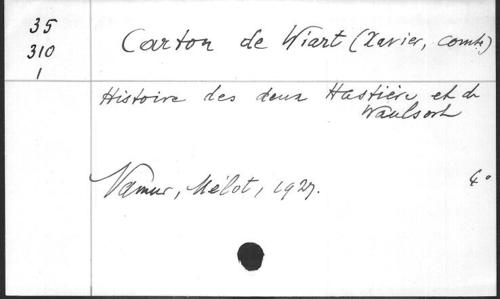 35
310
1
Carton de Wiart (Xavier, comte)
Histoire des deux Hastière et de
Waulsort
Namur, Mélot, 1927.
4°